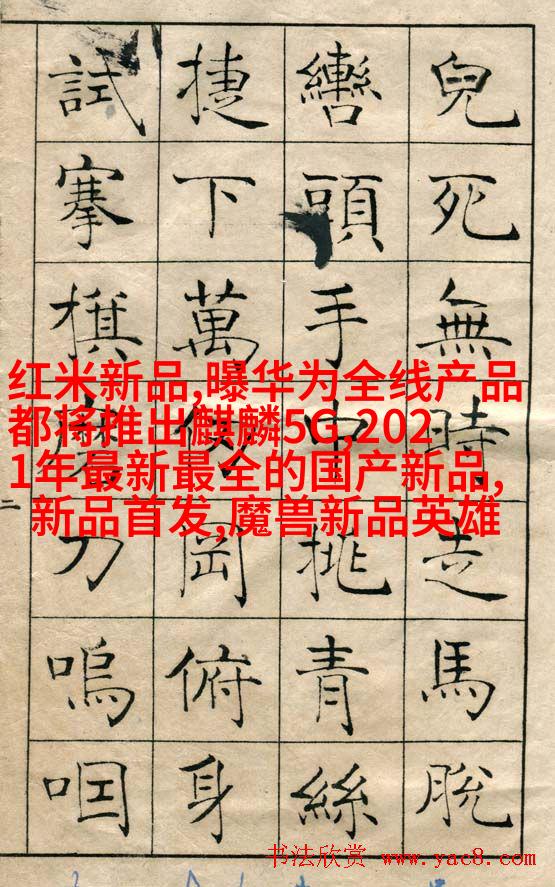 兒死無時走馬脫
轡頭手中挑青絲
捷下萬仞岡俯身
試搴旗磨刀嗚咽
二
红米新品,曝华为全线产品
都将推出麒麟5G,202
1年最新最全的国产新品,
新品首发,魔兽新品英雄
书法欣赏 www.yac8.com